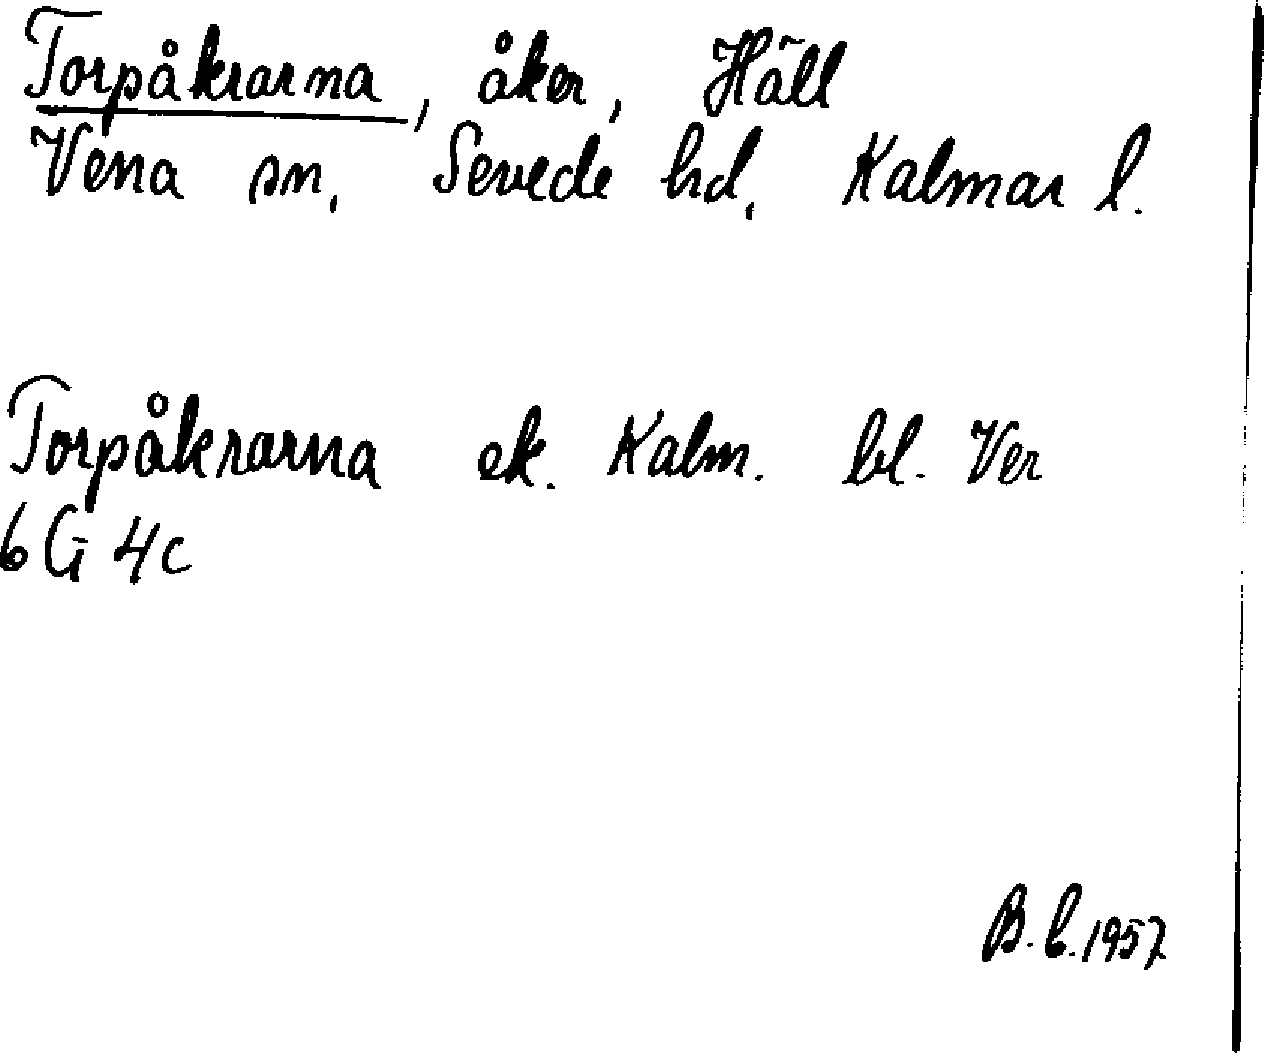 Torpåkrarna, åker, Häll
Vena sn, Sevede hd, Kalmar l.
Torpåkrarna ek. Kalm. bl. Ver
6 G 4c
B. b. 1957